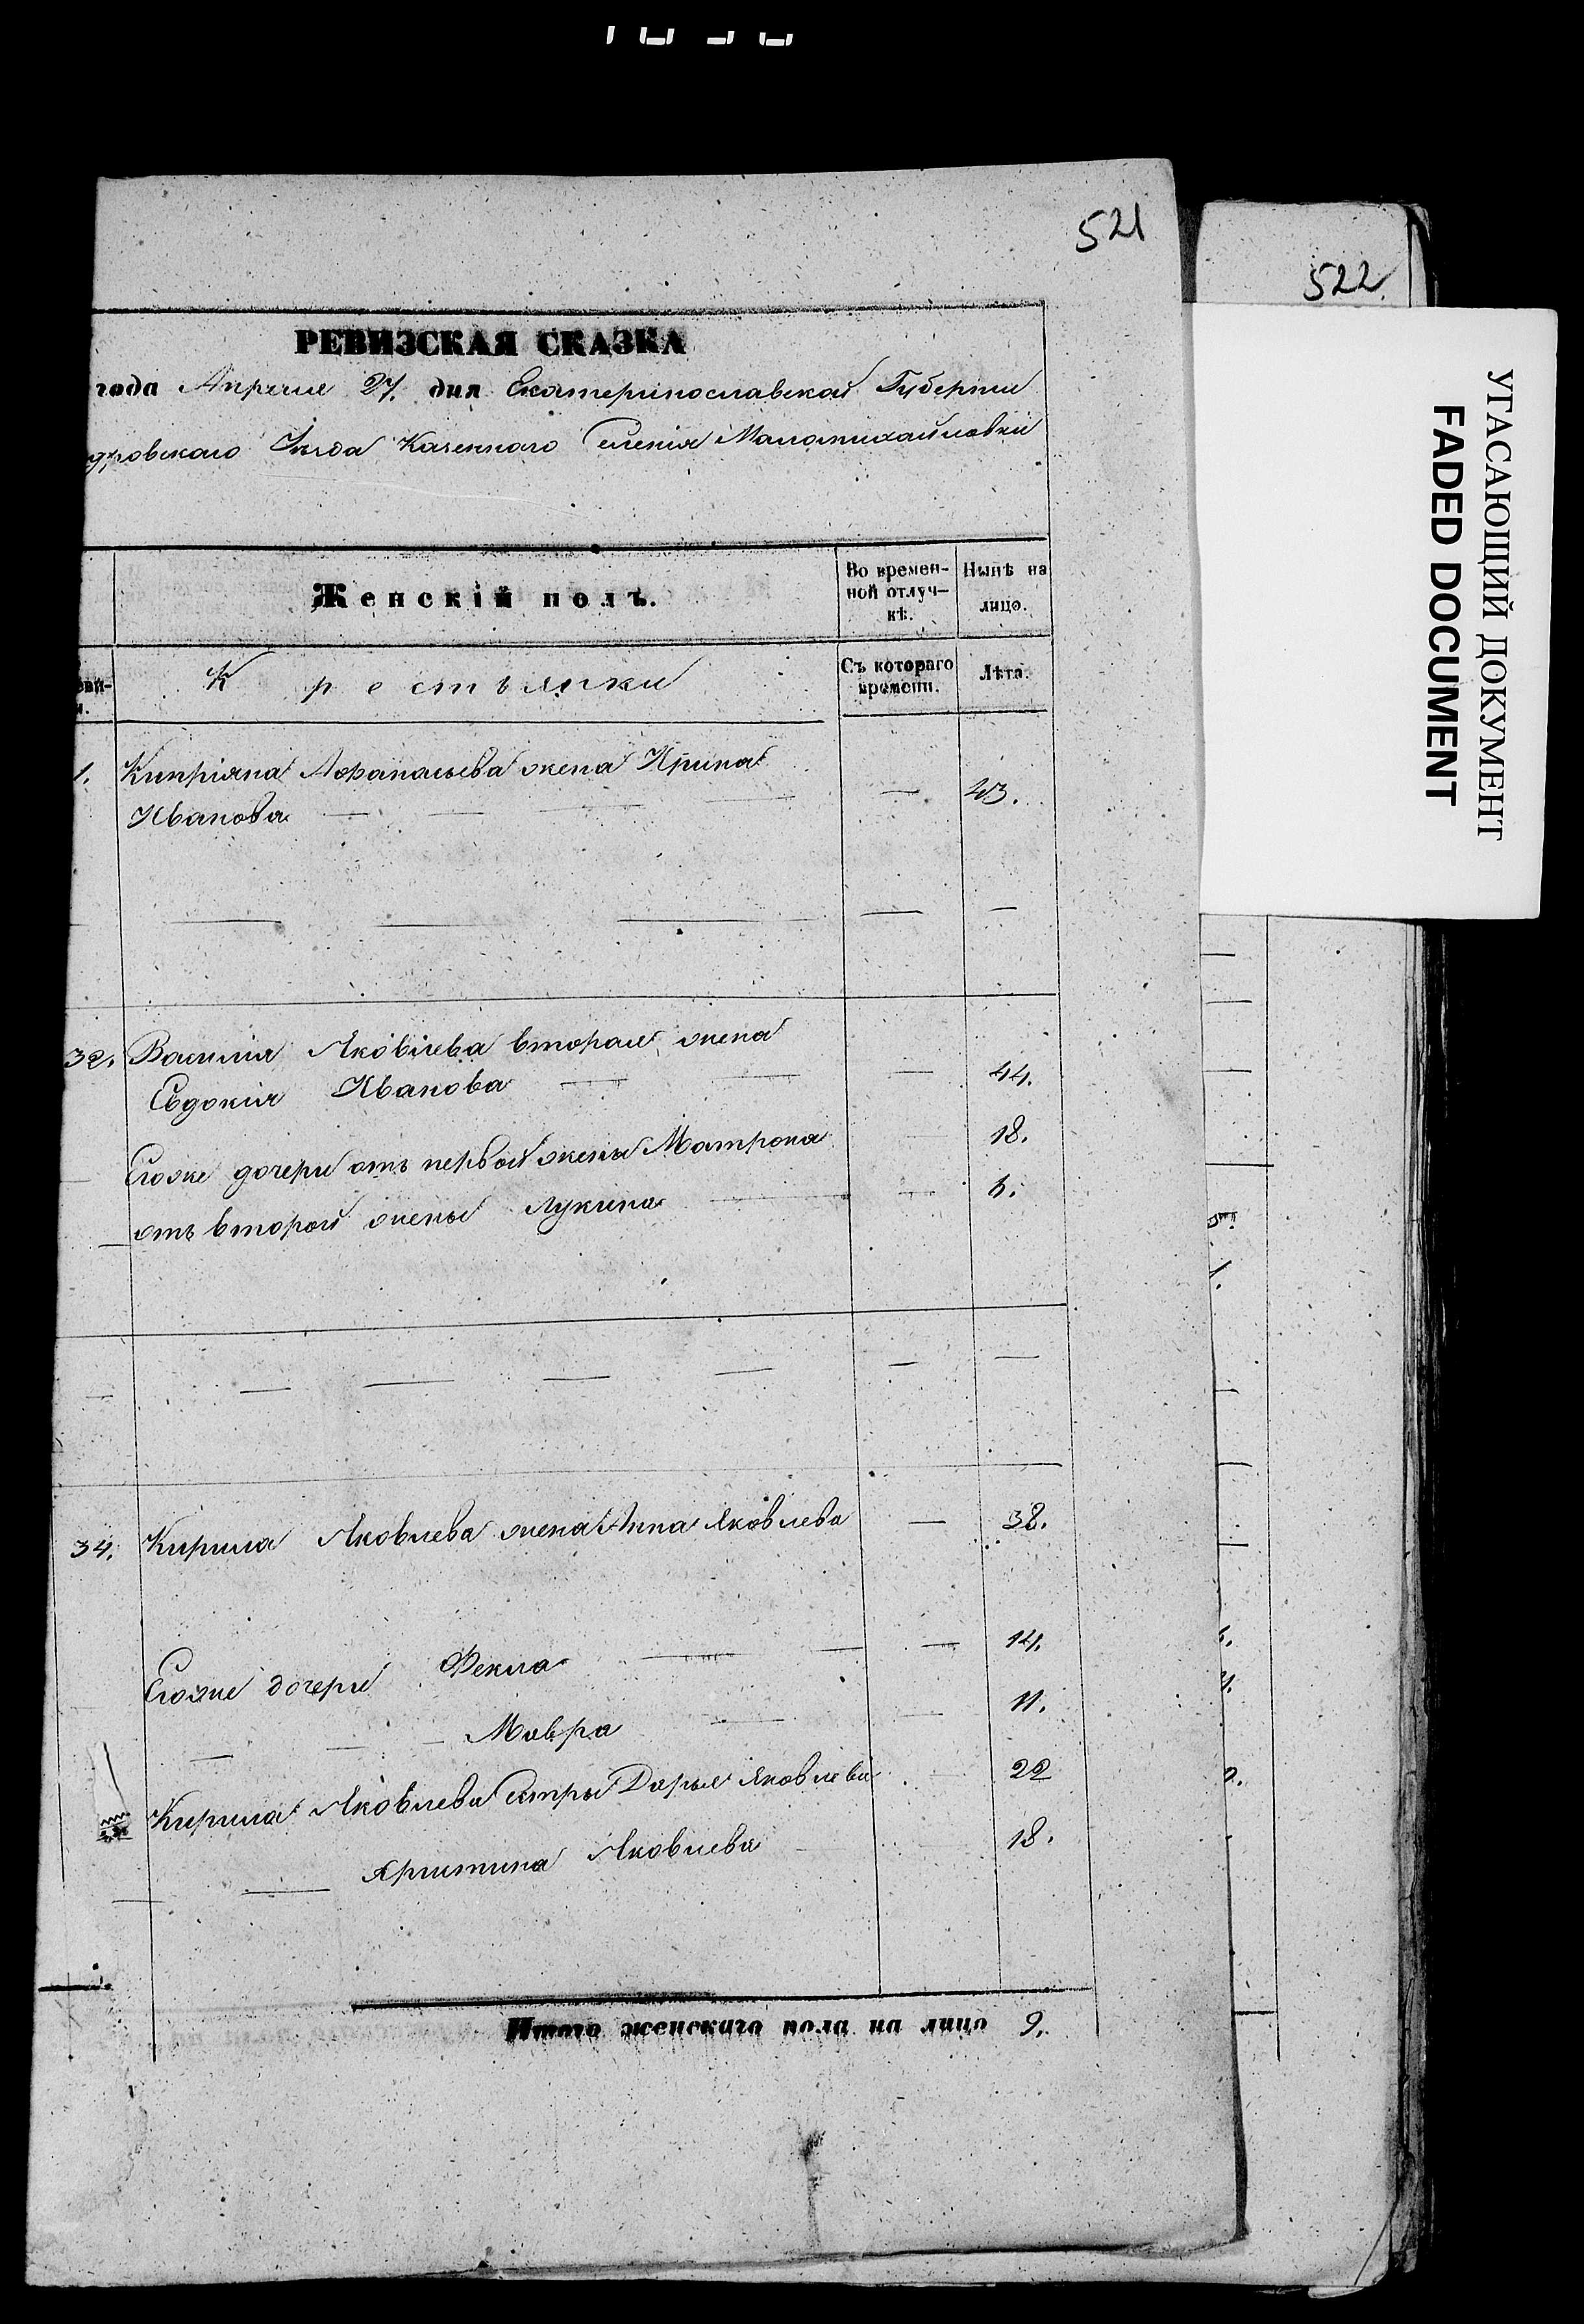 521
522.
РЕВИЗСКАЯ СКАЗКА
года Апреля 27. дня Екатеринославской Губернии
дровскаго Уѣзда Казеннаго Селенія Маломихайловки
Женскій полъ.
Во времен-
ной отлуч-
кѣ.
Нынѣ на
лицо.
Крестьянки
Съ котораго
времени.
Лѣта.
1. Кипріяна Афанасьева жена Ирина
Иванова — 43.
32. Василия Яковлева вторая жена
Евдокия Иванова — 44.
Егоже дочери отъ первой жены Матрона 18.
отъ второй жены Лукина
34. Кирила Яковлева жена Анна Яковлева — 38.
Егоже дочери Фекла — 14.
Мавра 11.
Кирила Яковлева сестры Дарья Яковлева 22
Христина Яковлева 18.
Итого женскаго пола на лицо 9.
УГАСАЮЩИЙ ДОКУМЕНТ
FADED DOCUMENT